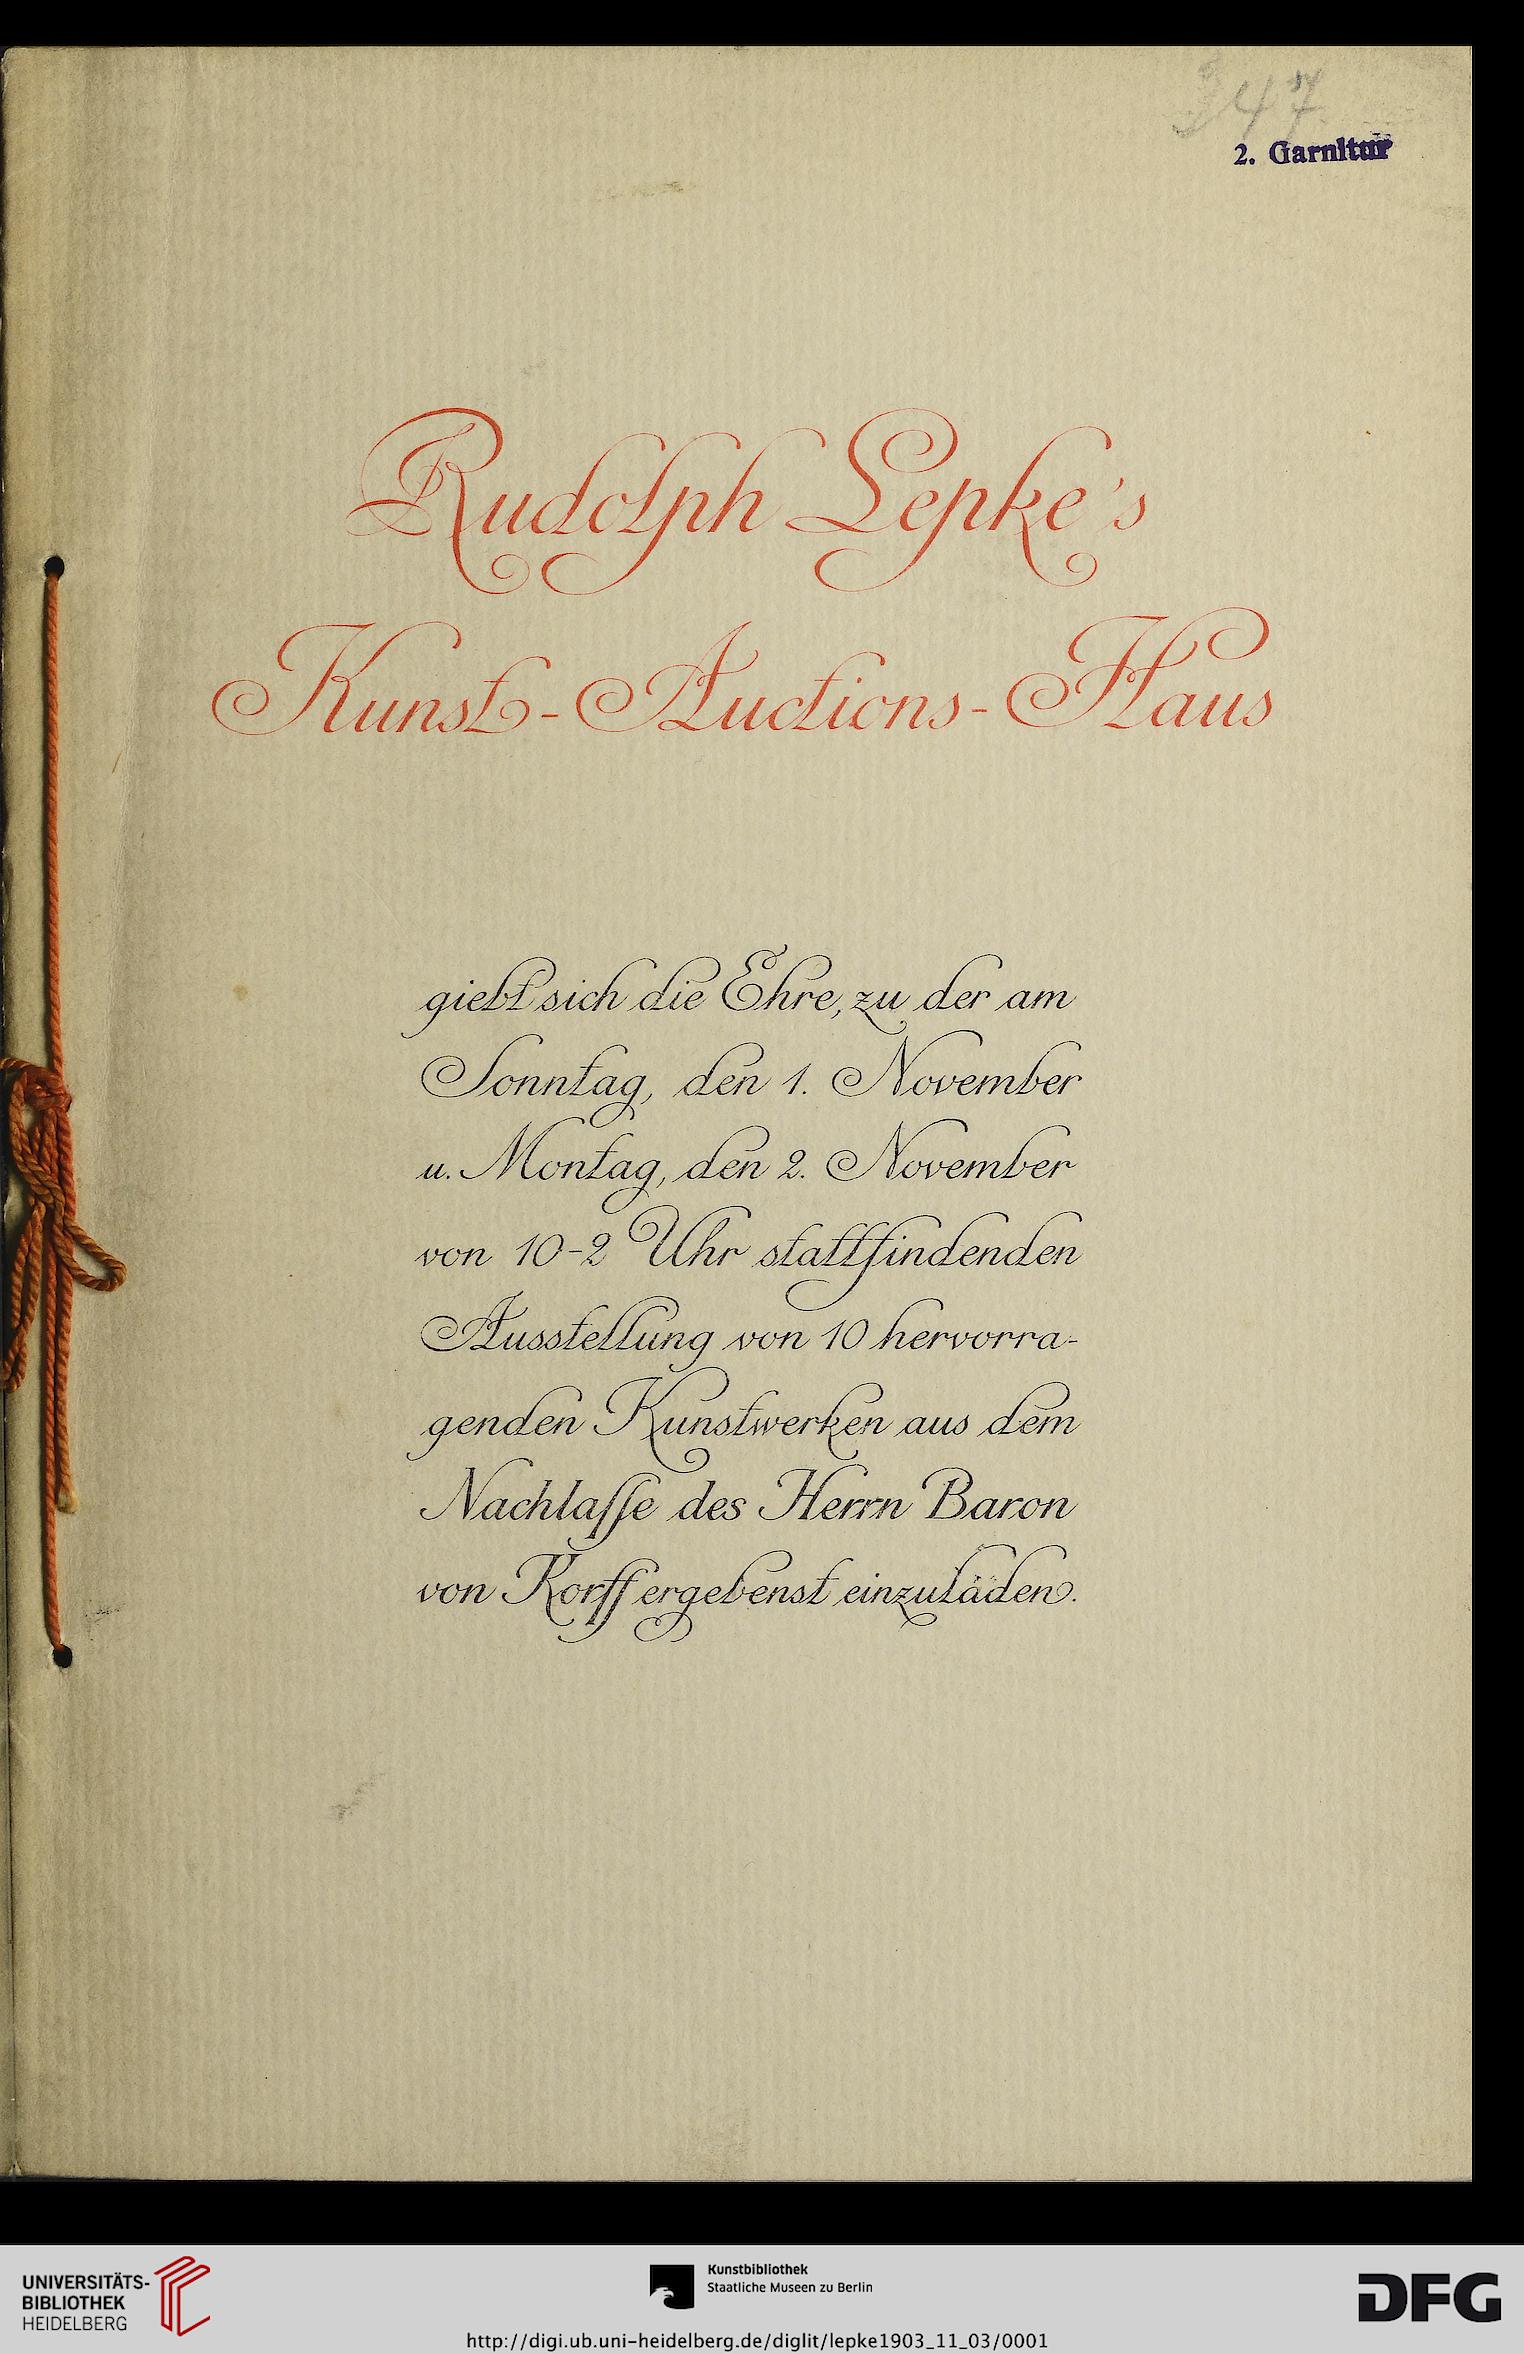 347
2. Garnitur
Rudolph Lepke's
Kunst-Auctions-Haus
giebt sich die Ehre, zu der am
Sonntag, den 1. November
u. Montag, den 2. November
von 10-2 Uhr stattfindenden
Ausstellung von 10 hervorra-
genden Kunstwerken aus dem
Nachlaſſe des Herrn Baron
von Korff ergebenst einzuladen.
UNIVERSITÄTS-
BIBLIOTHEK
HEIDELBERG
Kunstbibliothek
Staatliche Museen zu Berlin
DFG
http://digi.ub.uni-heidelberg.de/diglit/lepke1903_11_03/0001